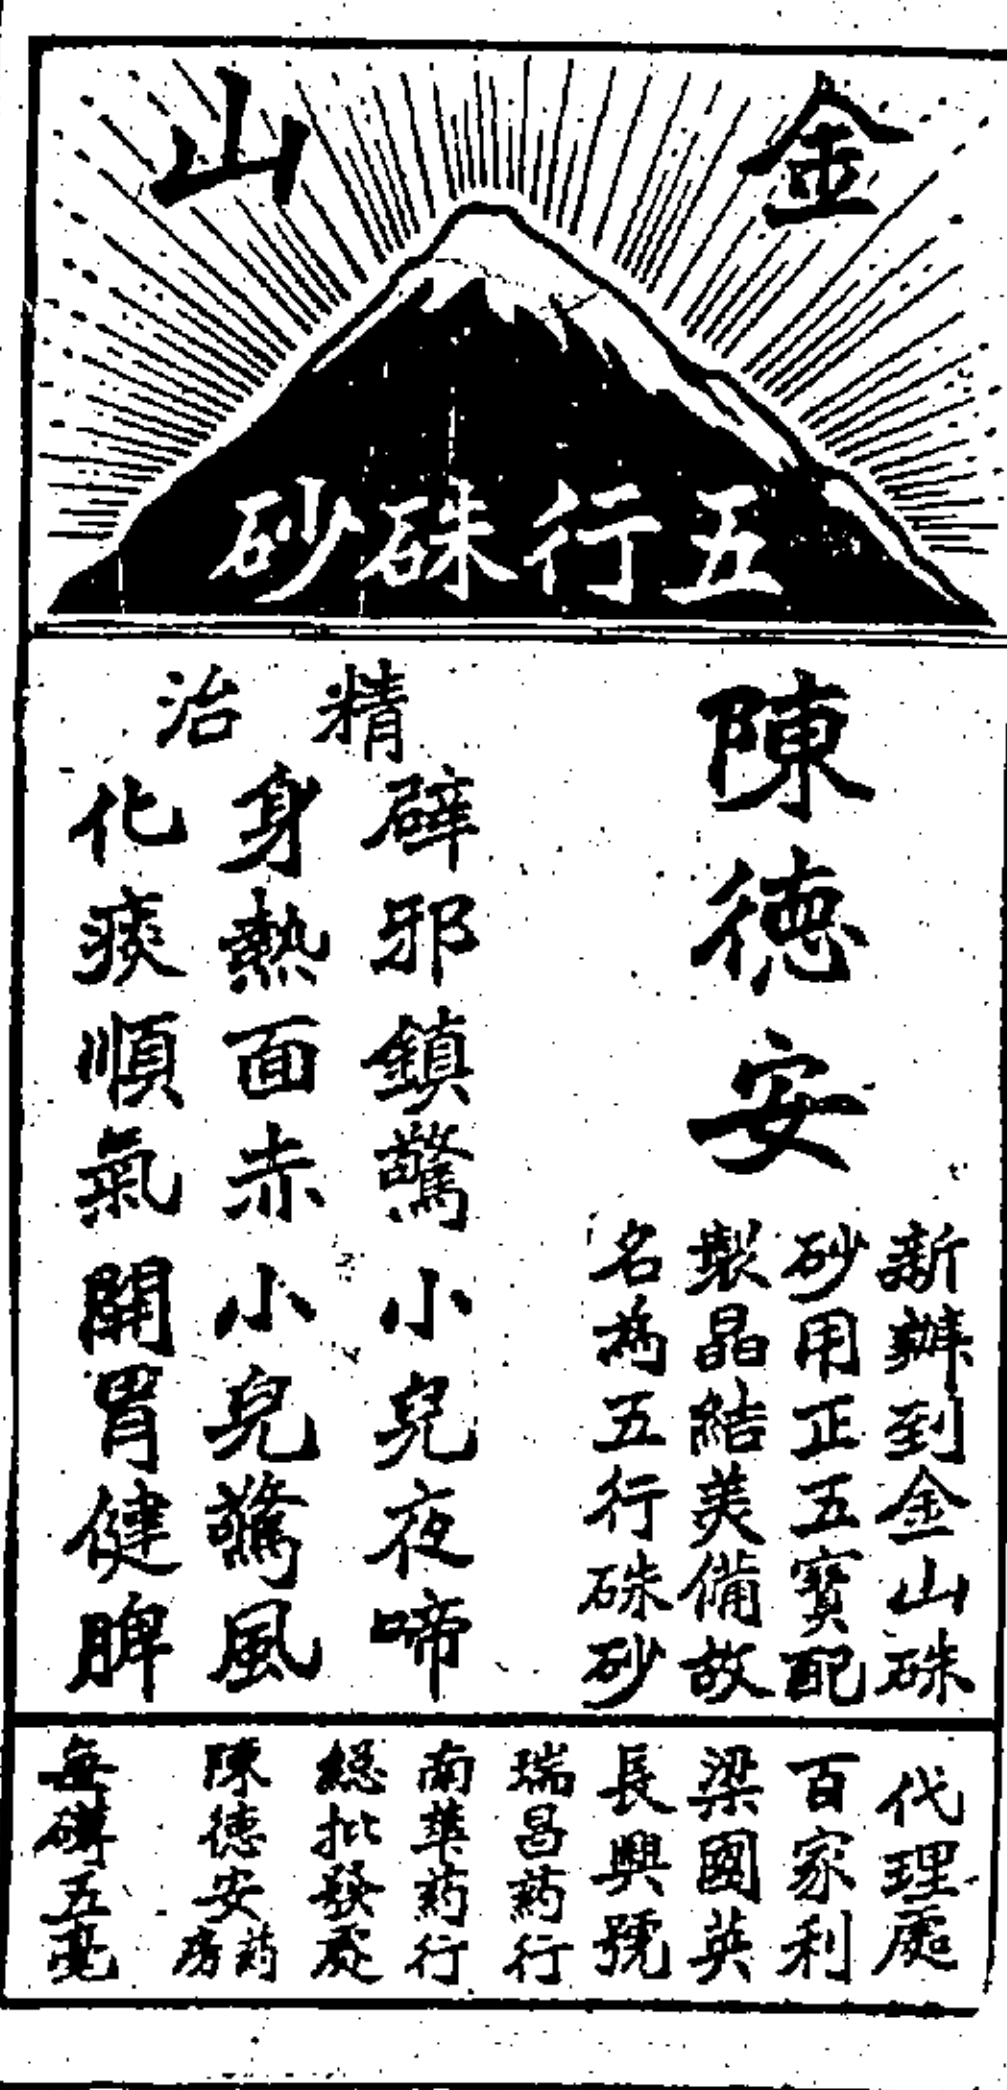 金山
五行硃砂
陳德安
新辦到金山硃
砂用正五寶配
製晶結美備故
名為五行硃砂
精治
辟邪鎮驚小兒夜啼
身熱面赤小兒驚風
化痰順氣開胃健脾
代理處
百家利
梁國英
長興號
瑞昌药行
南華药行
総批發處
陳德安药房
每磚五毫